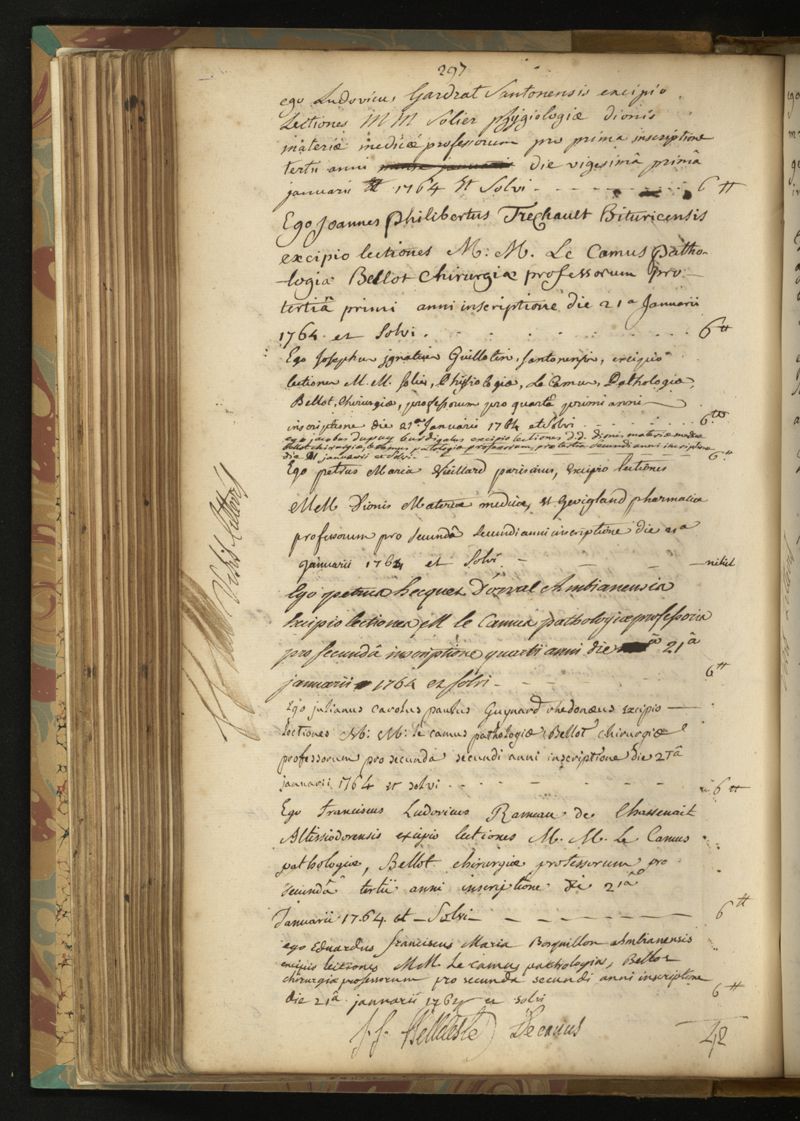 297
ego Ludovicus Gardrat Santonensis excipio
Lectiones MM Solier physiologiæ dionis
materiæ medicæ professorum pro prima inscriptione
tertii anni die vigesimâ primâ
januarii 1764 et Solvi - - - - - - 6 ₶
Ego Joannes philibertus Trechault Bituricensis
excipio lectiones M. M. Le Camus patho-
-logiæ Bellot chirurgiæ professorum pro
tertiâ primi anni inscriptione die 21a Januarii
1764 et Solvi . . . . . . . 6 ₶
Ego Josephus jgnatius Guillotin, santonensis, excipio
lectiones M. M. Solier, Phisiologiæ, Le Camus, Pathologiæ,
Bellot, Chirurgiæ, professorum pro quartâ primi anni
inscriptione die 21a Januarii 1764 et Solvi . . . . 6 ₶
ego jacobus dupuy burdigalus excipio lectiones d.d. dionis materiæ medicæ
Bellot chirurgiæ, le camus patologiæ professorum, pro tertia secundi anni inscriptione
die 21 januarii et solvi - - - - 6 ₶
Ego petrus Maria Vieillard parisinus, Excipio lectiones
MM Dionis Materiæ medicæ, et Gevigland pharmaciæ
professorum pro secundâ secundi anni inscriptione die 21a
Januarii 1764 et Solvi - - - - nihil
Ego petrus hecquet D'orval Ambianensis
Excipio lectiones M le Camus pathologiæ professoris
pro secundâ inscriptione quarti anni die 21â
januarii 1764 et solvi - - - - 6 ₶
Ego julianus carolus paulus Guynard rhedonæus Excipio
Lectiones M: M: le camus pathologiæ Bellot chirurgiæ
professorum pro secundâ secundi anni inscriptione die 21â
januarii 1764 et solvi - - - - 6 ₶
Ego Franciscus Ludovicus Rameau de Chassenait
Altissiodorensis excipio lectiones M. M. Le Camus
pathologiæ, Bellot chirurgiæ professorum pro
secundâ tertii anni inscriptione die 21â
Januarii 1764 et Solvi - - - - 6 ₶
ego Eduardus franciscus Maria Bosquillon ambianensis
excipio lectiones MM. Le camus pathologiæ, Bellot
chirurgiæ professorum pro secunda secundi anni inscriptione
die 21a januarii 1764 et solvi 6 ₶
Belleteste Decanus 42